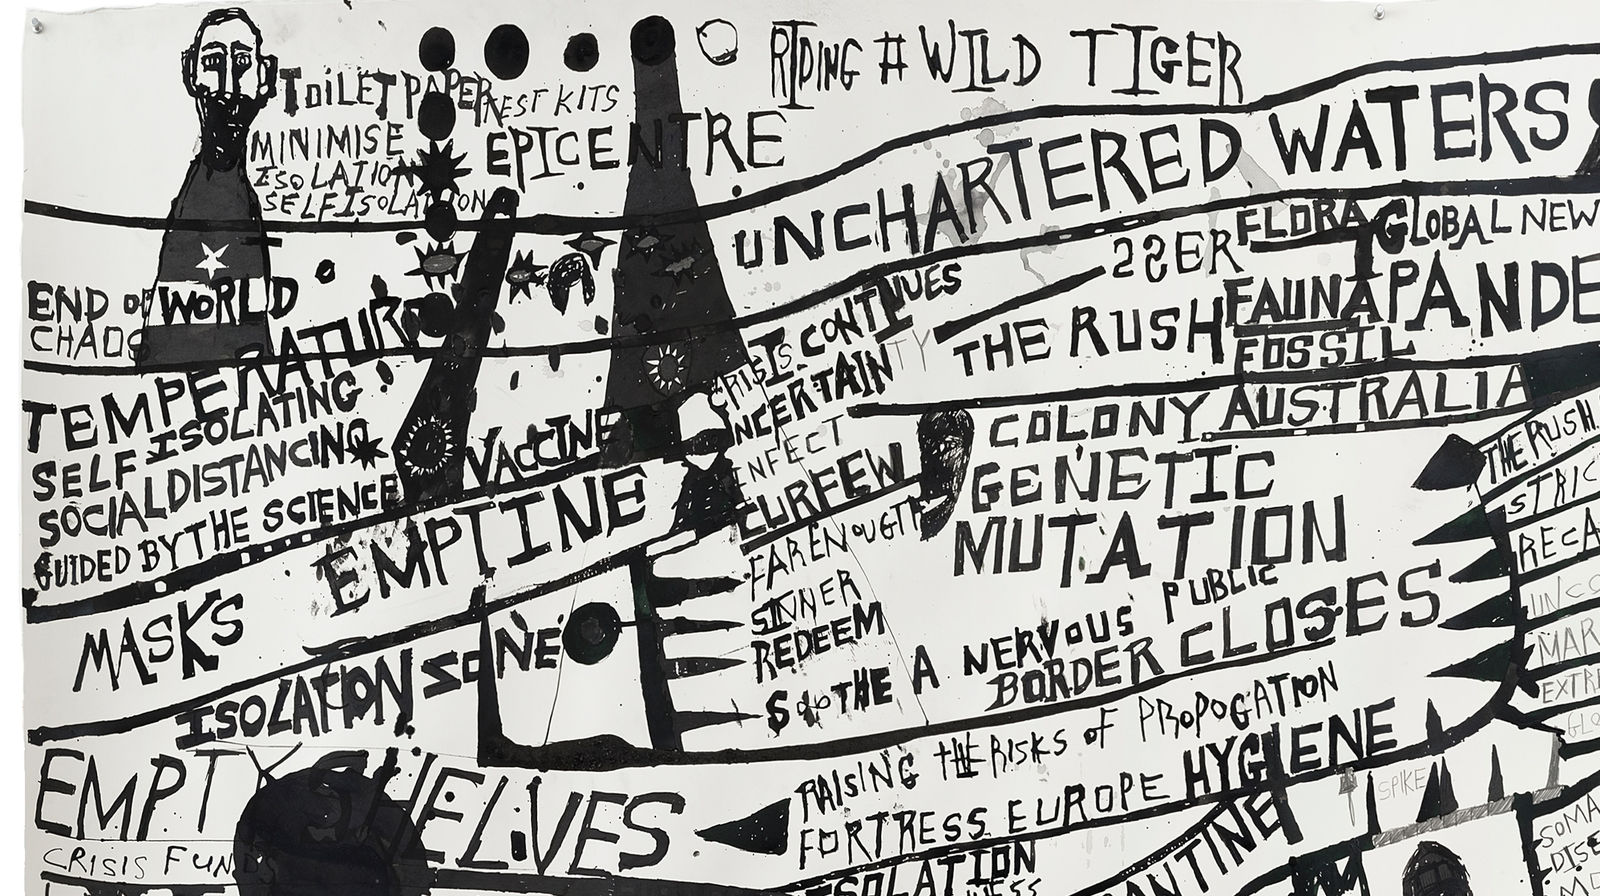 RIDING A WILD TIGER
TOILET PAPER
TEST KITS
MINIMISE
ISOLATION
SELF ISOLATION
EPICENTRE
UNCHARTERED WATERS
END OF WORLD
CHAOS
TEMPERATURE
SELF ISOLATING
SOCIAL DISTANCING
GUIDED BY THE SCIENCE
VACCINE
CRISIS CONTINUES
UNCERTAINTY
INFECT
CURFEW
FAR ENOUGH
SINNER
REDEEM
SOOTHE A NERVOUS PUBLIC
THE RUSH
FLORA
FAUNA
FOSSIL
GLOBAL NEW
PANDE
COLONY AUSTRALIA
GENETIC
MUTATION
BORDER CLOSES
MASKS
EMPTINE
ISOLATION
NE
EMPTY SHELVES
CRISIS FUNDS
RAISING THE RISKS OF PROPOGATION
FORTRESS EUROPE HYGIENE
ISOLATION
ANTINE
SPIKE
THE RUSH
STRIC
RECA
MAR
EXTRE
SOMA
DISE